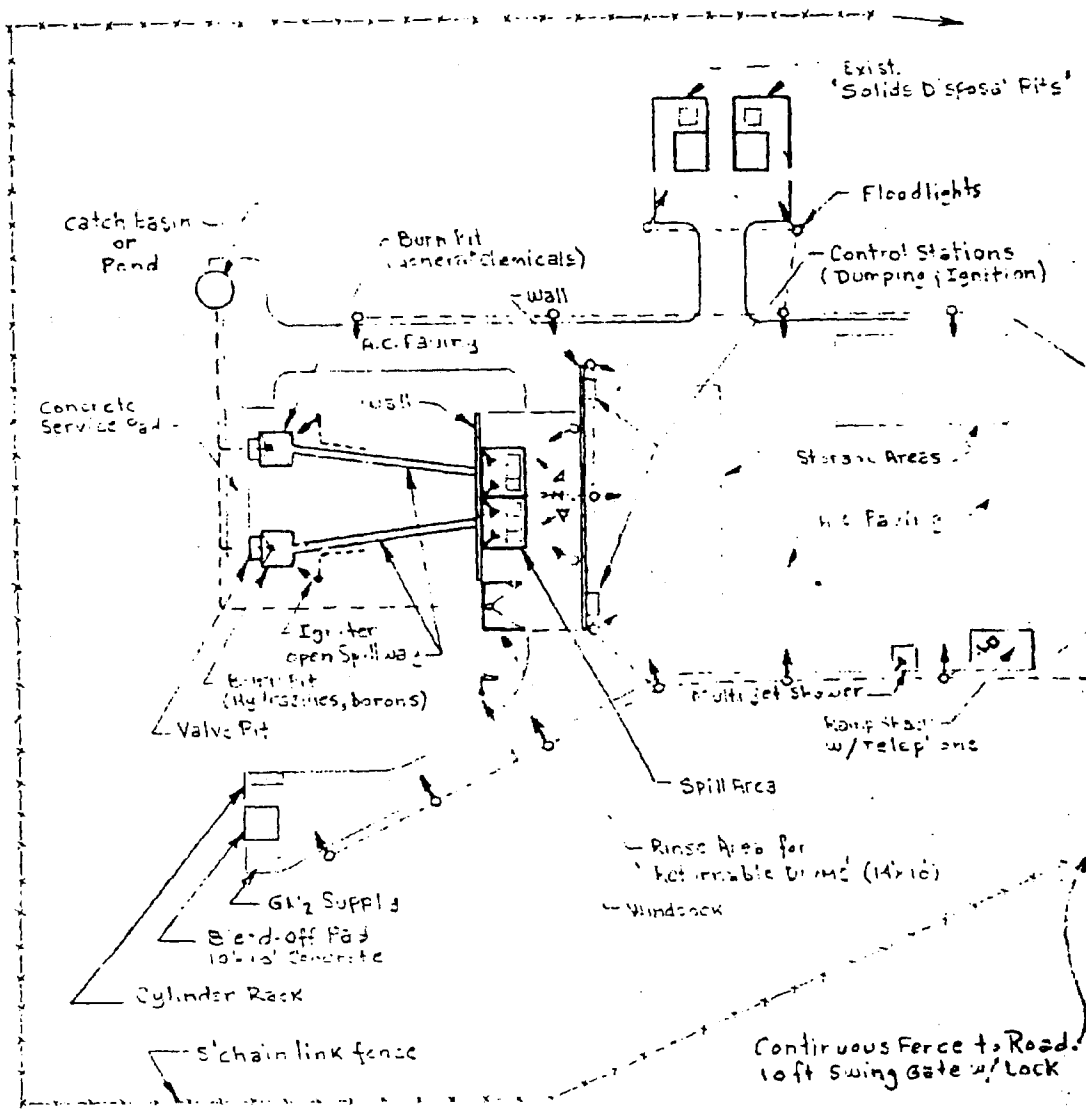 Exist.
'Solids Disposal Pits'
Floodlights
Catch Basin
or
Pond
Burn Pit
(General Chemicals)
Control Stations
(Dumping & Ignition)
Wall
A.C. Paving
Wall
Concrete
Service Pad
Storage Areas
A.C. Paving
Igniter
open Spillway
Burn Pit
(Hydrazines, borons)
Valve Pit
Multi jet Shower
w/Telephone
Spill Area
Rinse Area for
Returnable Drums (14x16)
Windsock
GN₂ Supply
Bleed-off Pad
10'x10' Concrete
Cylinder Rack
5' chain link fence
Continuous Fence to Road.
10ft Swing Gate w/ Lock